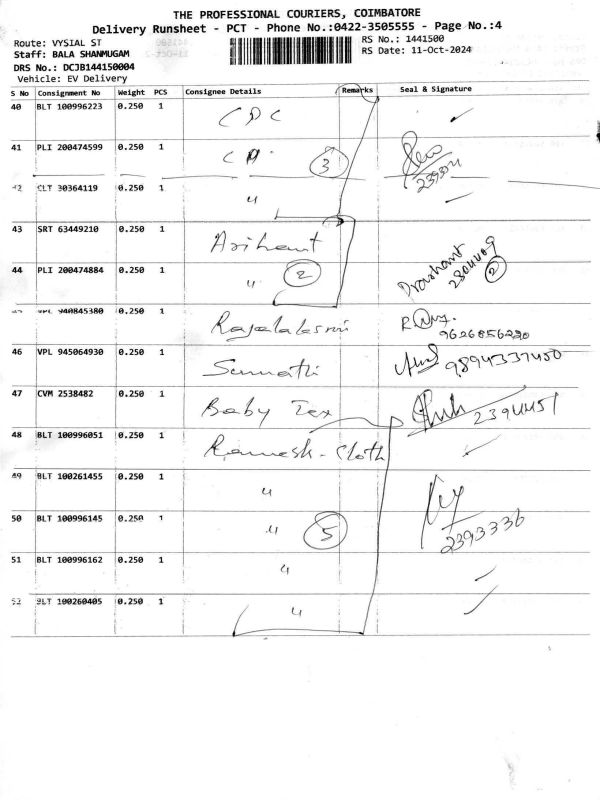 THE PROFESSIONAL COURIERS, COIMBATORE
Delivery Runsheet - PCT - Phone No.:0422-3505555 - Page No.:4
Route: VYSIAL ST
RS No.: 1441500
Staff: BALA SHANMUGAM
RS Date: 11-Oct-2024
DRS No.: DCJB144150004
Vehicle: EV Delivery
S No Consignment No Weight PCS Consignee Details Remarks Seal & Signature
40 BLT 100996223 0.250 1 CPC ✓
41 PLI 200474599 0.250 1 3
42 CLT 30364119 0.250 1 " ✓
43 SRT 63449210 0.250 1 Arihant Prashant
44 PLI 200474884 0.250 1 " 2 2
45 VPL 940845380 0.250 1 Rajalakshmi 9626856230
46 VPL 945064930 0.250 1 Sumathi 9894337400
47 CVM 2538482 0.250 1 Baby Tex 2394451
48 BLT 100996051 0.250 1 Ramesh-Cloth ✓
49 BLT 100261455 0.250 1 "
50 BLT 100996145 0.250 1 " 5 2393336
51 BLT 100996162 0.250 1 " ✓
52 BLT 100260405 0.250 1 " ✓